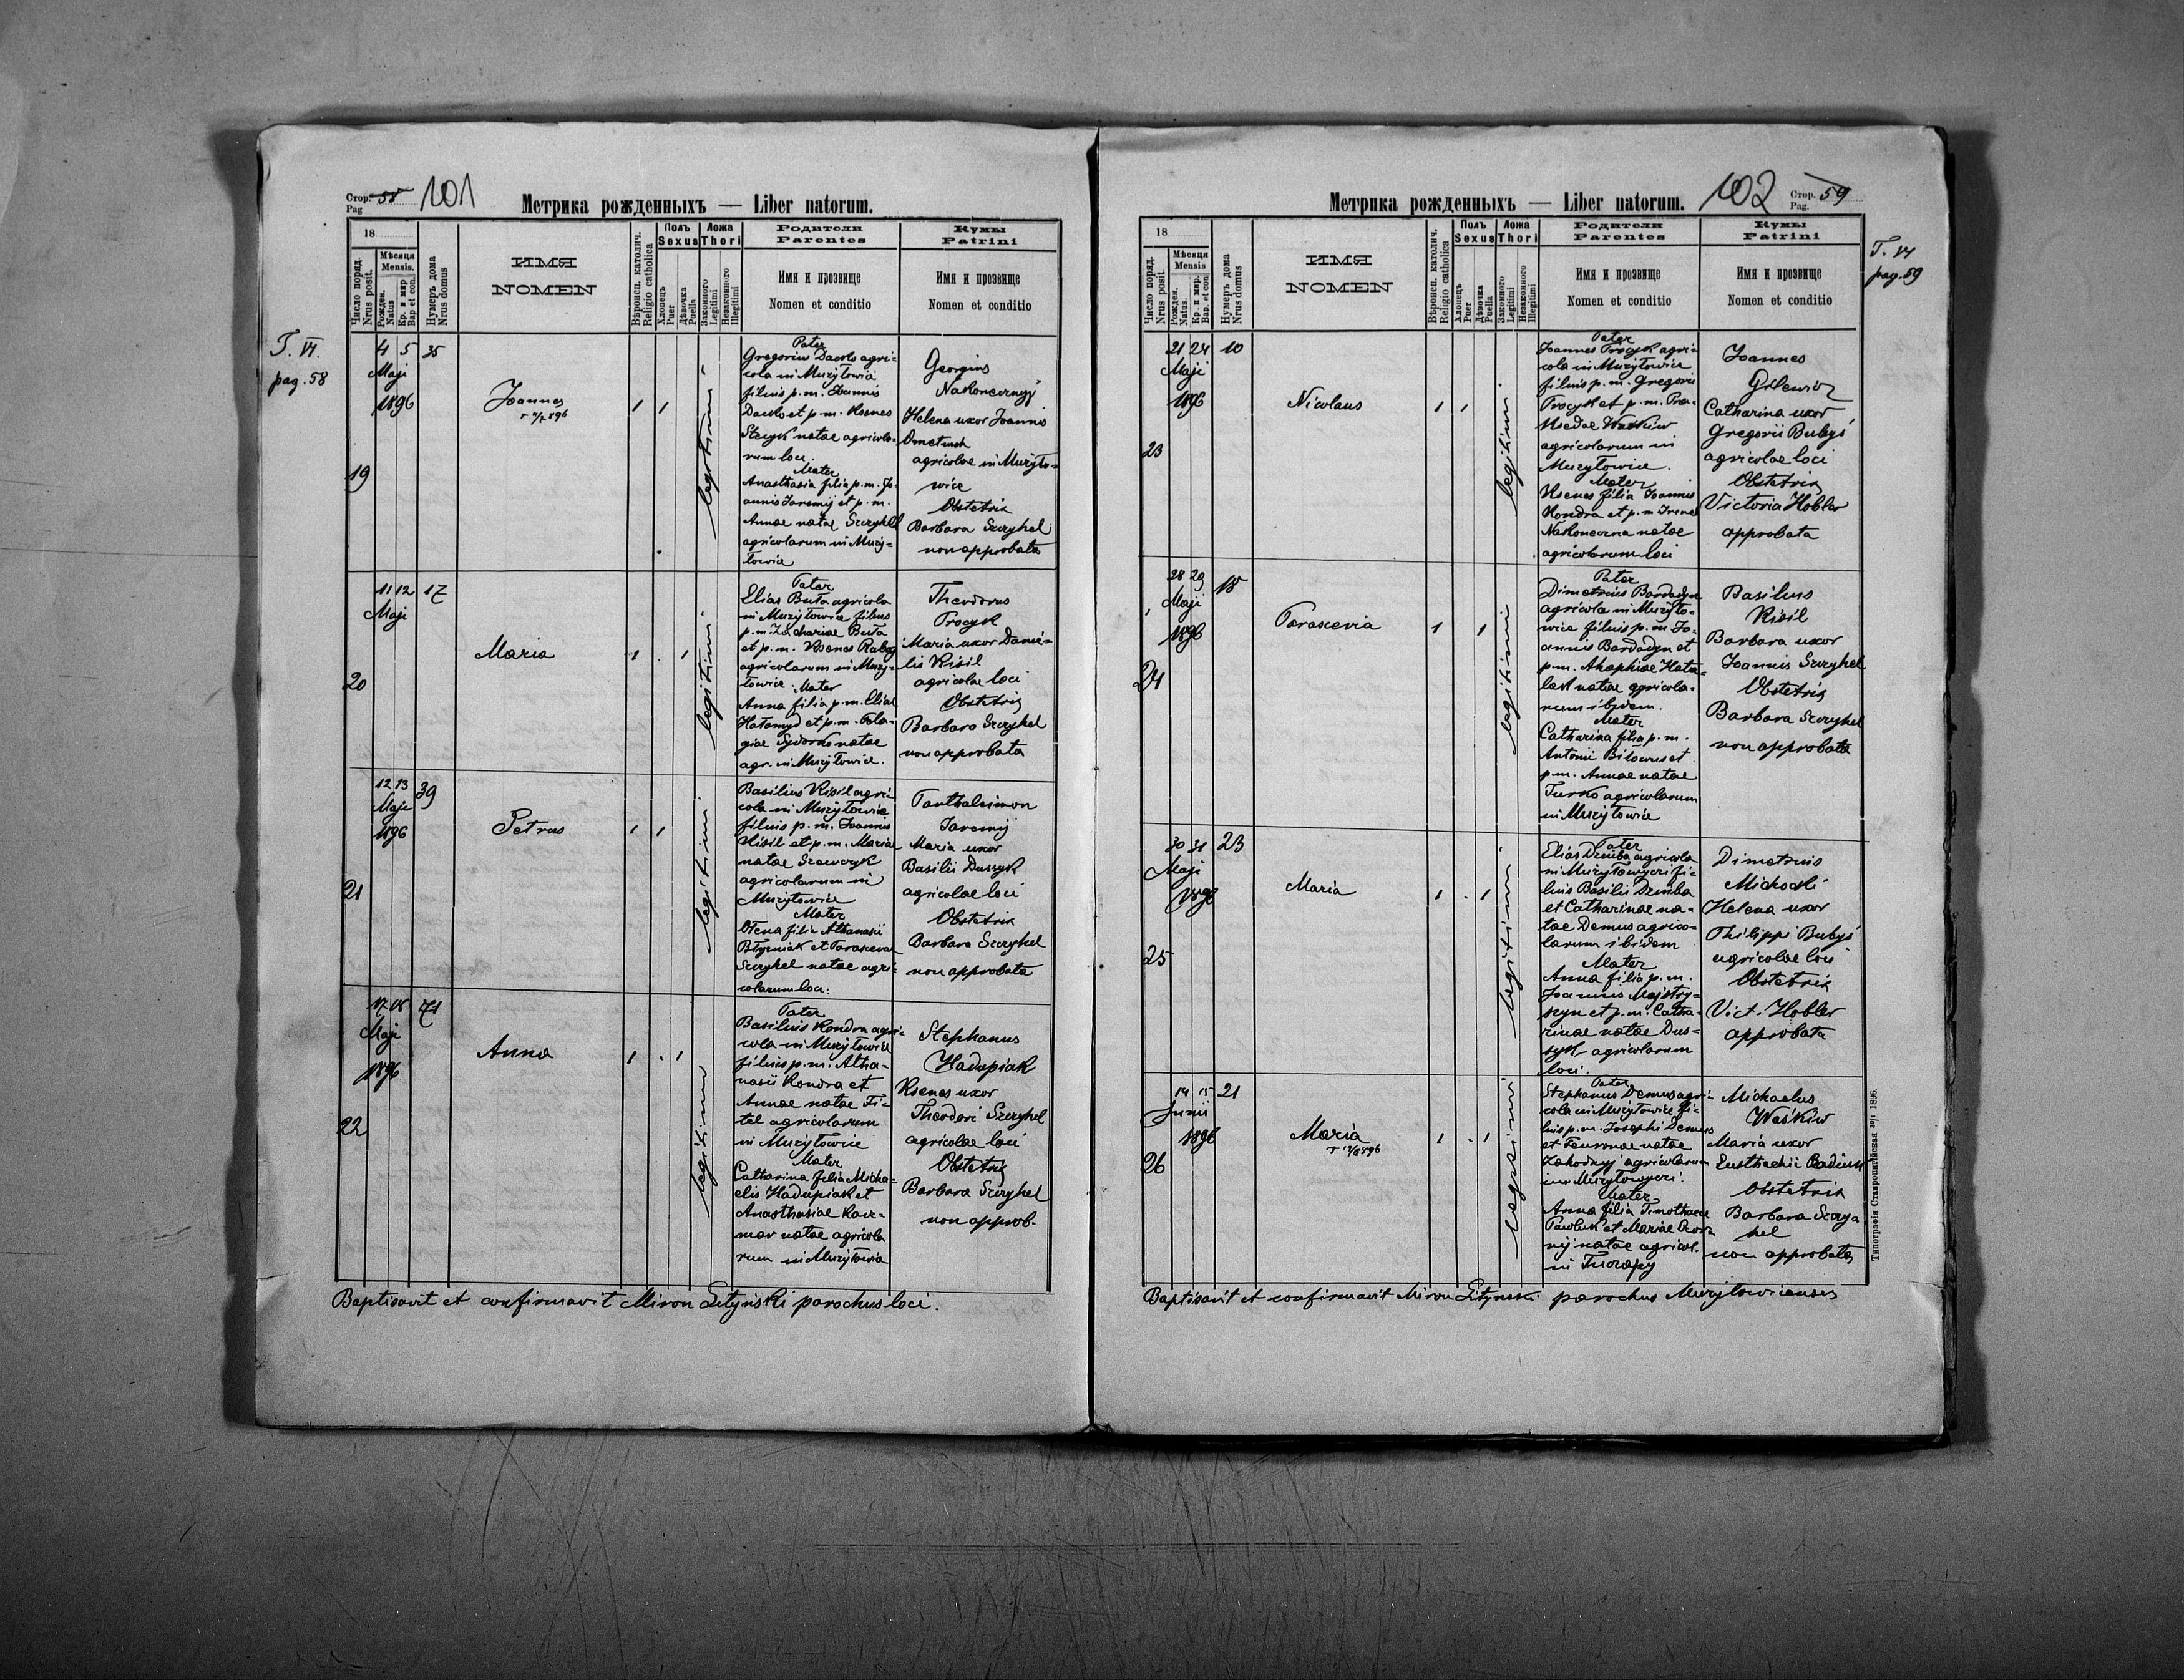 Стор. 58 101
Pag
Метрика рожденныхъ — Liber natorum.
18
Число поряд.
Nrus posit.
Мѣсяця
Mensis.
Рожден.
Natus
Кр. и мир
Bap et con.
Нумеръ дома
Nrus domus
ИМЯ
NOMEN
Вѣроисп. католич.
Religio catholica
Полъ
Sexus
Хлопецъ
Puer
Дѣвочка
Puella
Ложа
Thori
Законного
Legitimi
Незаконного
Illegitimi
Родители
Parentes
Имя и прозвище
Nomen et conditio
Кумы
Patrini
Имя и прозвище
Nomen et conditio
T. VI.
pag. 58
19
4 5 35
Maji
1896
Joannes
1 1
legitimi
Pater
Gregorius agri-
cola in Mużyłowice
filius p. m. Joannis
et p. m. Ksenes
Stecyk natae agricola-
rum loci.
Mater
Anasthasia filia p. m. Jo-
annis Jaremij et p. m.
Annae natae Szczyhel
agricolarum in Muży-
łowice
Georgius
Nakonecznyj
Helena uxor Joannis
agricolae in Mużyło-
wice
Obstetrix
Barbara Szczyhel
non approbata
20
11 12 17
Maji
Maria
1 . 1
legitimi
Pater
Elias Buła agricola
in Mużyłowice filius
p. m. Zachariae Buła
et p. m. Ksenes
agricolarum in Muży-
łowice. Mater
Anna filia p. m. Eliae
Hałamyd et p. m. Pela-
giae Sydorko natae
agr. in Mużyłowice.
Theodorus
Trocyk
Maria uxor Dani-
lis Kisil
agricolae loci
Obstetrix
Barbara Szczyhel
non approbata
21
12 13 39
Maji
1896
Petrus
1 1
legitimi
Basilius Kisil agri-
cola in Mużyłowice
filius p. m. Joannis
Kisil et p. m. Maria
natae Szewczyk
agricolarum in
Mużyłowice
Mater
Ołena filia Athanasii
et Parasceva
Szczyhel natae agri-
colarum loci.
Panthaleimon
Jaremij
Maria uxor
Basilii Dussyk
agricolae loci
Obstetrix
Barbara Szczyhel
non approbata
22
17 18 71
Maji
1896
Anna
1 . 1
legitimi
Pater
Basilius Kondra agri-
cola in Mużyłowice
filius p. m. Atha-
nasii Kondra et
Annae natae Fi-
tel agricolarum
in Mużyłowice
Mater
Catharina filia Micha-
elis Hadupiak et
Anasthasiae Kacz-
mar natae agricola
rum in Mużyłowice
Stephanus
Hadupiak
Ksenes uxor
Theodori Szczyhel
agricolae loci
Obstetrix
Barbara Szczyhel
non approb.
Baptisavit et confirmavit Miron Lityński parochus loci.
102 Стор. 59
Pag.
Метрика рожденныхъ — Liber natorum.
18
Число поряд.
Nrus posit
Мѣсяця
Mensis
Рожден.
Natus.
Кр. и мир.
Bap. et con.
Нумеръ дома
Nrus domus
ИМЯ
NOMEN
Вѣроисп. католич.
Religio catholica
Полъ
Sexus
Хлопецъ
Puer
Дѣвочка
Puella
Ложа
Thori
Законного
Legitimi
Незаконного
Illegitimi
Родители
Parentes
Имя и прозвище
Nomen et conditio
Кумы
Patrini
Имя и прозвище
Nomen et conditio
T. VI
pag. 59
23
21 24 10
Maji
1896
Nicolaus
1 1
legitimi
Pater
Joannes Trocyk agri-
cola in Mużyłowice
filius p. m. Gregorii
Trocyk et p. m. Pra-
ksedae Waśkiw
agricolarum in
Mużyłowice.
Mater
Ksenes filia Joannis
Kondra et p. m Irenae
Nakoneczna natae
agricolarum loci
Joannes
Gilewicz
Catharina uxor
Gregorii Bubyś
agricolae loci
Obstetrix
Victoria Hobler
approbata
24
28 29 18
Maji
1896
Parascevia
1 1
legitimi
Pater
Dimetrius Bardadyn
agricola in Mużyło-
wice filius p. m. Jo-
annis Bardadyn et
p. m. Ahaphiae Hata-
last natae agricola-
rum ibidem.
Mater
Catharina filia p. m.
Antonii Biłowus et
p. m. Annae natae
Turko agricolarum
in Mużyłowice
Basilius
Kisil
Barbara uxor
Joannis Szczyhel
Obstetrix
Barbara Szczyhel
non approbata
25
30 31 23
Maji
1896
Maria
1 . 1
legitimi
Pater
Elias Dziuba agricola
in Mużyłowyci fi-
lius Basilii Dziuba
et Catharinae na-
tae Demus agrico-
larum ibidem
Mater
Anna filia p. m.
Joannis Majstry-
szyn et p. m. Catha-
rinae natae Dus-
syk agricolarum
loci.
Dimetrius
Michocki
Helena uxor
Philippi Bubyś
agricolae loci
Obstetrix
Vict. Hobler
approbata
26
14 15 21
Junii
1896
Maria
1 . 1
legitimi
Pater
Stephanus Demus agri-
cola in Mużyłowice fi-
lius p. m. Josephi Demus
et Fevronae natae
Zahodnyj agricolarum
in Mużyłowyci.
Mater
Anna filia Timothaei
Pawluk et Mariae
natae agricol.
in
Michaelus
Waśkiw
Maria uxor
Eusthachii
Obstetrix
Barbara Szczy-
hel
non approbata
Baptisavit et confirmavit Miron Lityński parochus Mużyłoviensis
Типографія Ставропигійская 1896.